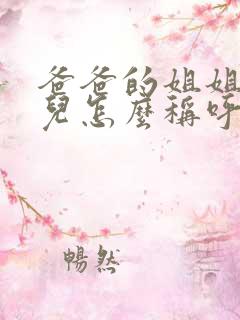 爸爸的姐姐
兒怎麼稱呼
暢然